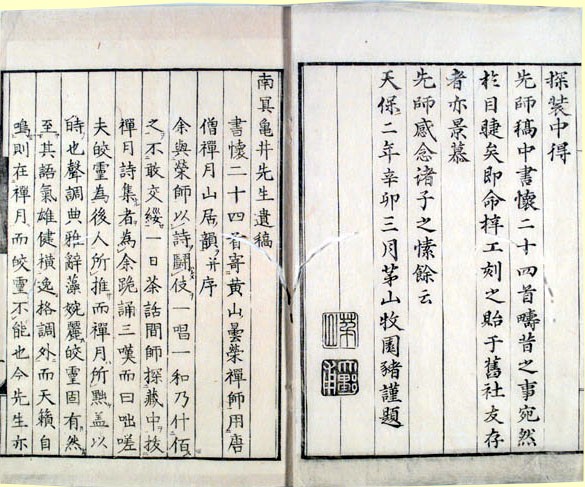 探装中得
先師稿中書懷二十四首疇昔之事宛然
於目睫矣即命梓工刻之貽于舊社友存
者亦景慕
先師感念諸子之愫餘云
天保二年辛卯三月茅山牧園豬謹題
南冥亀井先生遺稿
書懷二十四首寄黄山曇榮禪師用唐
僧禪月山居韻并序
余與榮師以詩鬪伎一唱一和乃什佰
之不敢交綏一日茶話間師探藏中拔
禪月詩集者為余跪誦三嘆而曰咄嗟
夫皎靈為後人所推而禪月所黜蓋以
時也聲調典雅辭藻婉麗皎靈固有然
至其語氣雄健橫逸格調外而天籟自
鳴則在禪月而皎靈不能也今先生亦